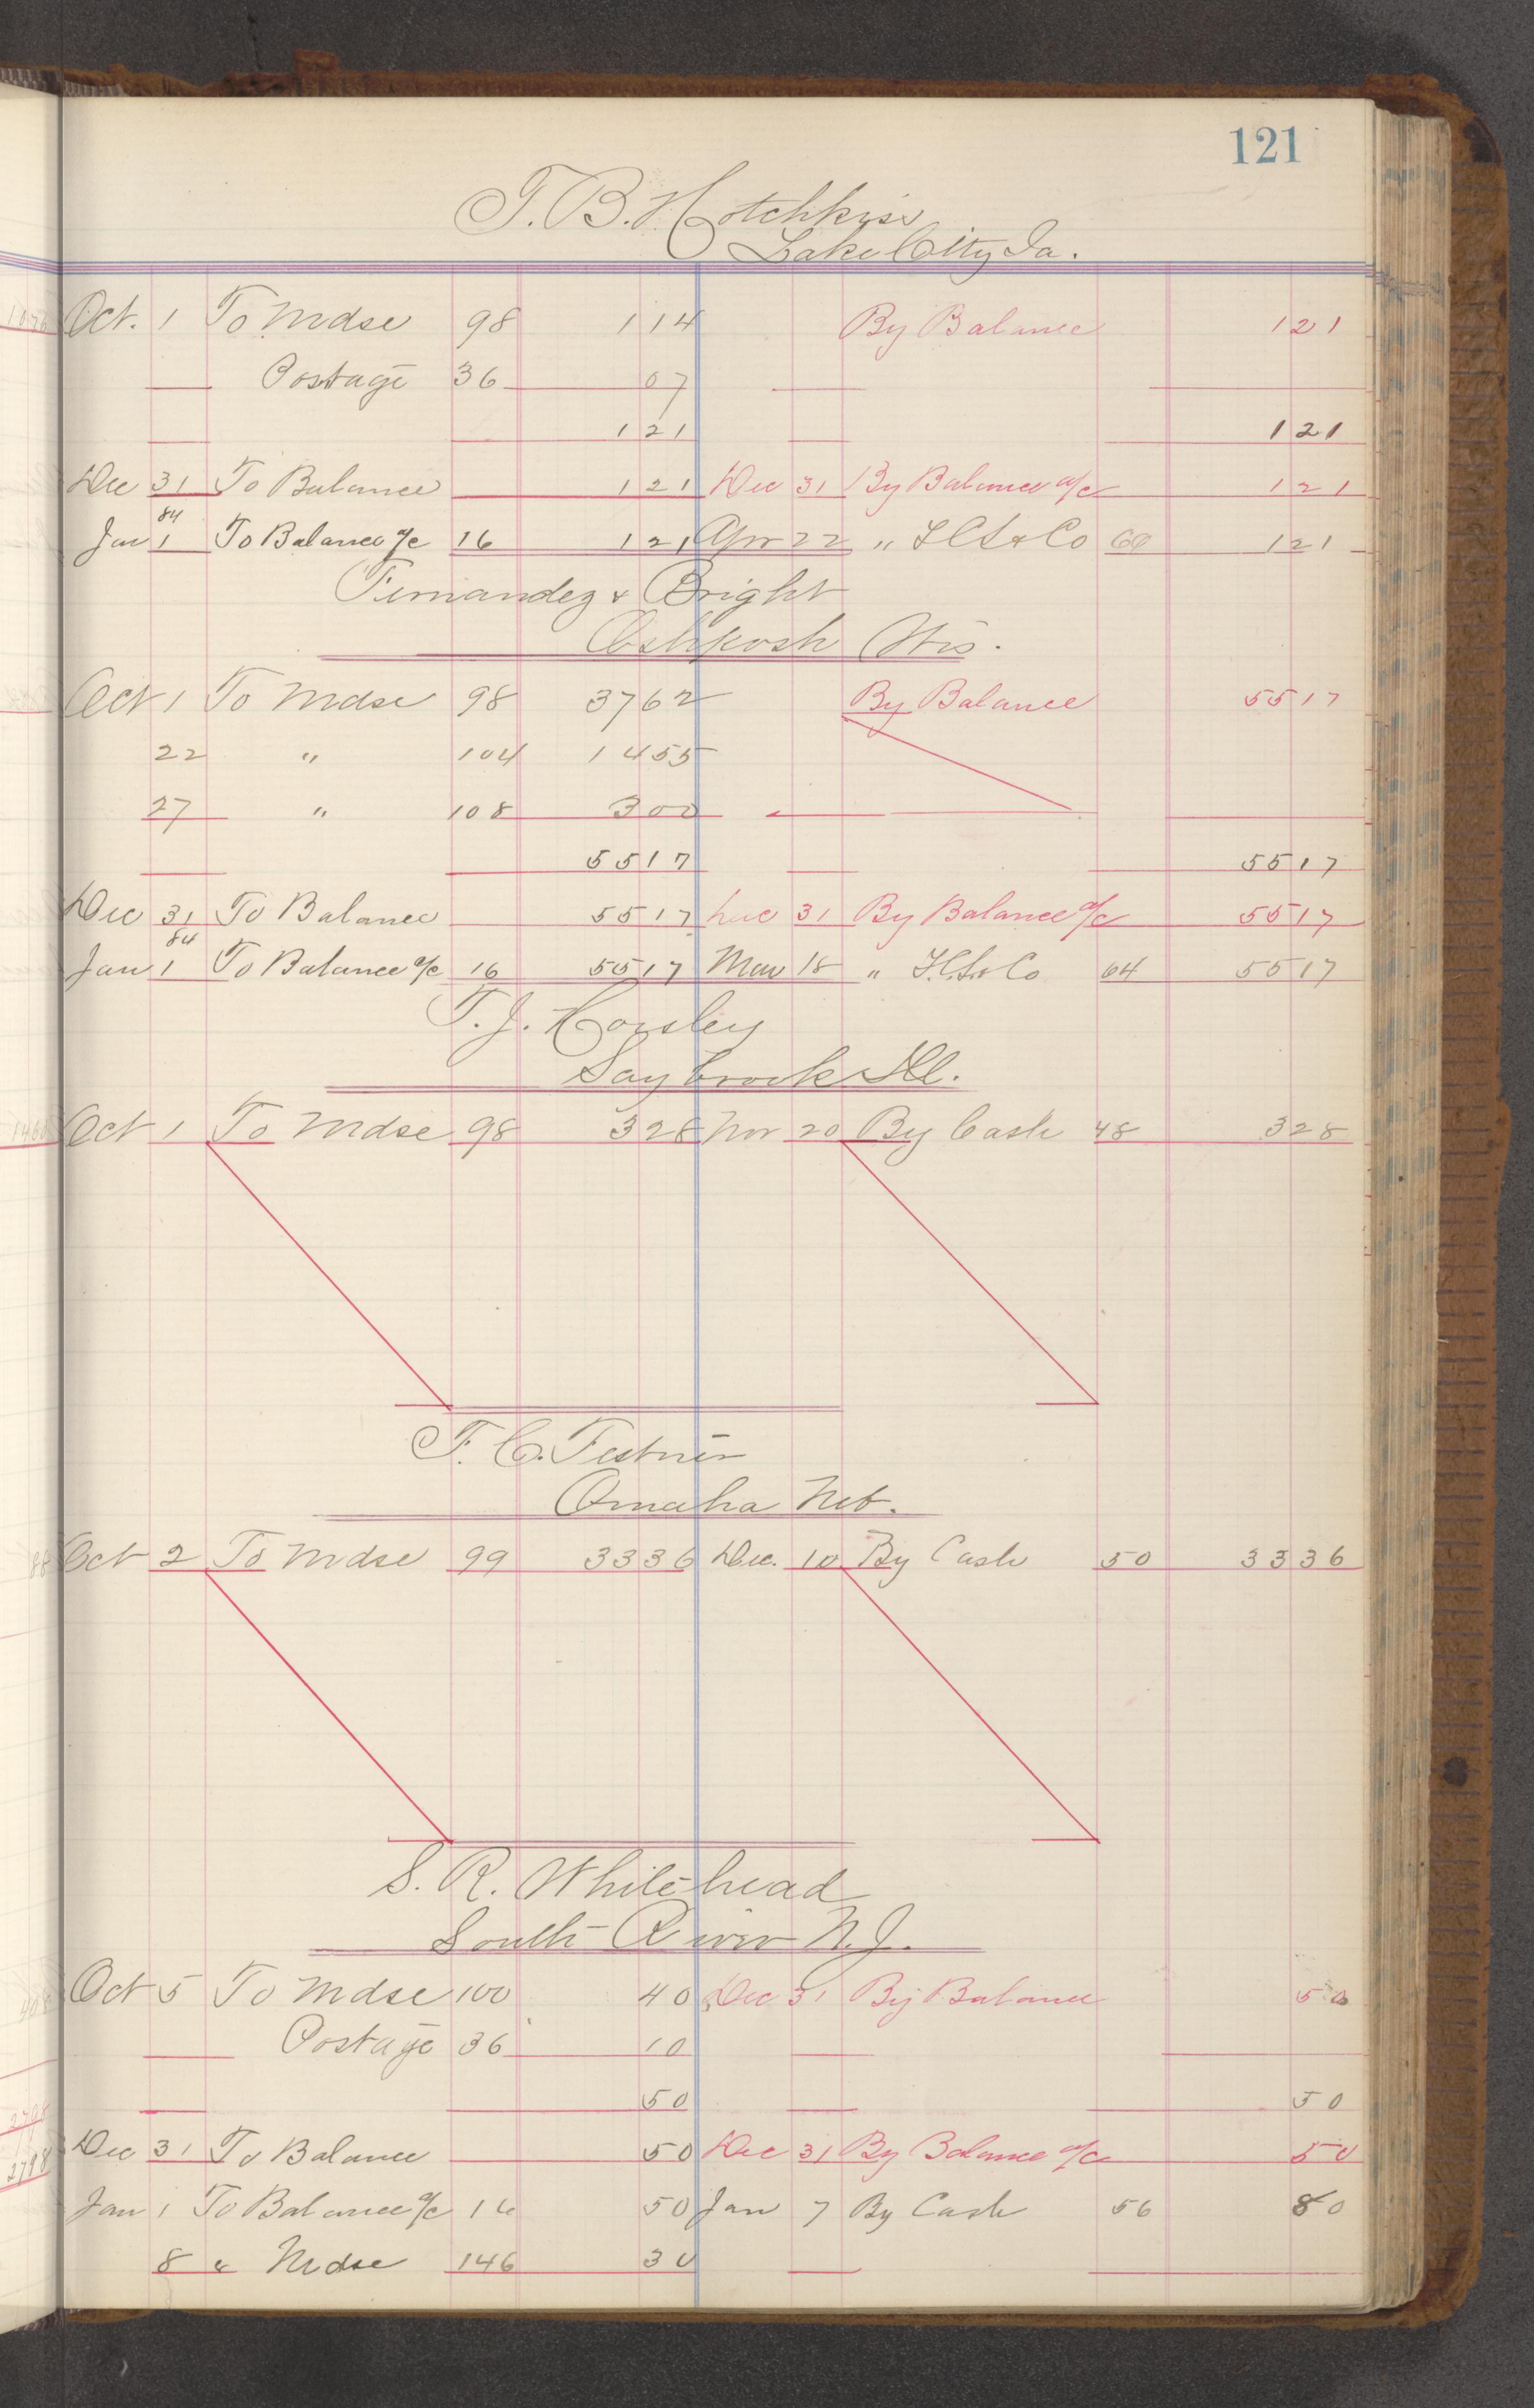 121
T. B. Hotchkiss
Lake City Ia.
Oct. 1 To Mdse 98 1 14 By Balance 1 21
Postage 36 07
1 21 1 21
Dec 31 To Balance 1 21 Dec 31 By Balance a/c 1 21
84
Jan 1 To Balance a/c 16 1 21 Apr 22 " F.C.S. & Co 66 1 21
Fernandez & Bright
Oshkosh Wis.
Oct 1 To Mdse 98 37 62 By Balance 55 17
22 " 104 14 55
27 " 108 3 00
55 17 55 17
Dec 31 To Balance 55 17 Dec 31 By Balance a/c 55 17
84
Jan 1 To Balance a/c 16 55 17 Mar 18 " & Co 64 55 17
T. J. Horsley
Saybrook Ill.
Oct 1 To Mdse 98 3 28 Nov 20 By Cash 48 3 28
F. C. Festner
Omaha Neb.
Oct 2 To Mdse 99 33 36 Dec. 10 By Cash 50 33 36
S. R. Whitehead
South River N.J.
Oct 5 To Mdse 100 40 Dec 31 By Balance 50
Postage 36 10
50 50
Dec 31 To Balance 50 Dec 31 By Balance a/c 50
Jan 1 To Balance a/c 16 50 Jan 7 By Cash 56 80
8 " Mdse 146 30